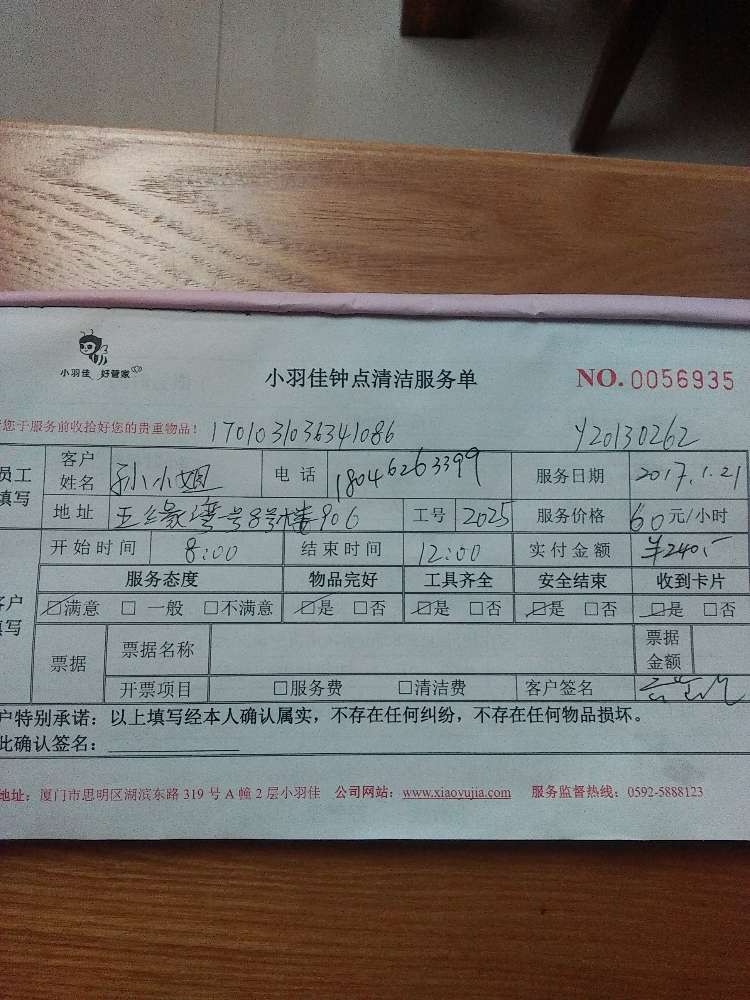 小羽佳 好管家
小羽佳钟点清洁服务单 NO. 0056935
您于服务前收拾好您的贵重物品! 170103103634 1086 Y20130262
员工填写 客户姓名 孙小姐 电话 18046263399 服务日期 2017.1.21
地址 五缘湾号8号楼906 工号 2025 服务价格 60元/小时
开始时间 8:00 结束时间 12:00 实付金额 ¥240.-
客户填写 服务态度 物品完好 工具齐全 安全结束 收到卡片
☑满意 □一般 □不满意 ☑是 □否 ☑是 □否 ☑是 □否 ☑是 □否
票据 票据名称 票据金额
开票项目 □服务费 □清洁费 客户签名
户特别承诺:以上填写经本人确认属实,不存在任何纠纷,不存在任何物品损坏。
此确认签名:
地址:厦门市思明区湖滨东路 319 号 A 幢 2 层小羽佳 公司网站:www.xiaoyujia.com 服务监督热线:0592-5888123